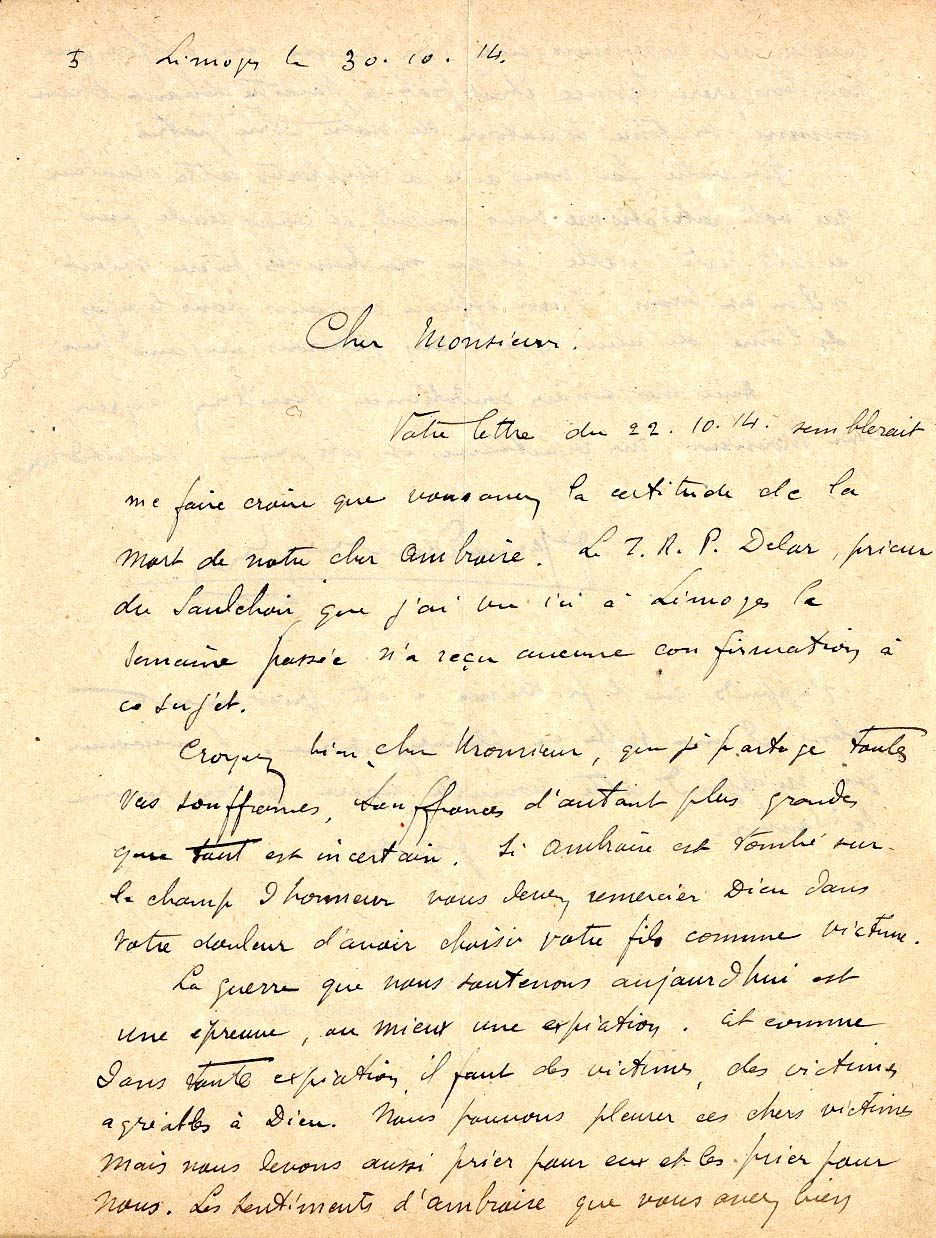 Limoges le 30.10.14.
Cher Monsieur.
Votre lettre du 22.10.14. semblerait
me faire croire que vous avez la certitude de la
mort de notre cher Ambroise. Le T. R. P. Delor, prieur
du Saulchoir que j'ai vu ici à Limoges la
semaine passée n'a reçu aucune confirmation à
ce sujet.
Croyez bien, cher Monsieur, que je partage toutes
vos souffrances, souffrances d'autant plus grandes
que tout est incertain. Si Ambroise est tombé sur
le champ d'honneur vous devez remercier Dieu dans
votre douleur d'avoir choisir votre fils comme victime.
La guerre que nous soutenons aujourd'hui est
une épreuve, ou mieux une expiation. Et comme
dans toute expiation il faut des victimes, des victimes
agréables à Dieu. Nous pouvons pleurer ces chers victimes
mais nous devons aussi prier pour eux et les prier pour
nous. Les sentiments d'Ambroise que vous avez bien